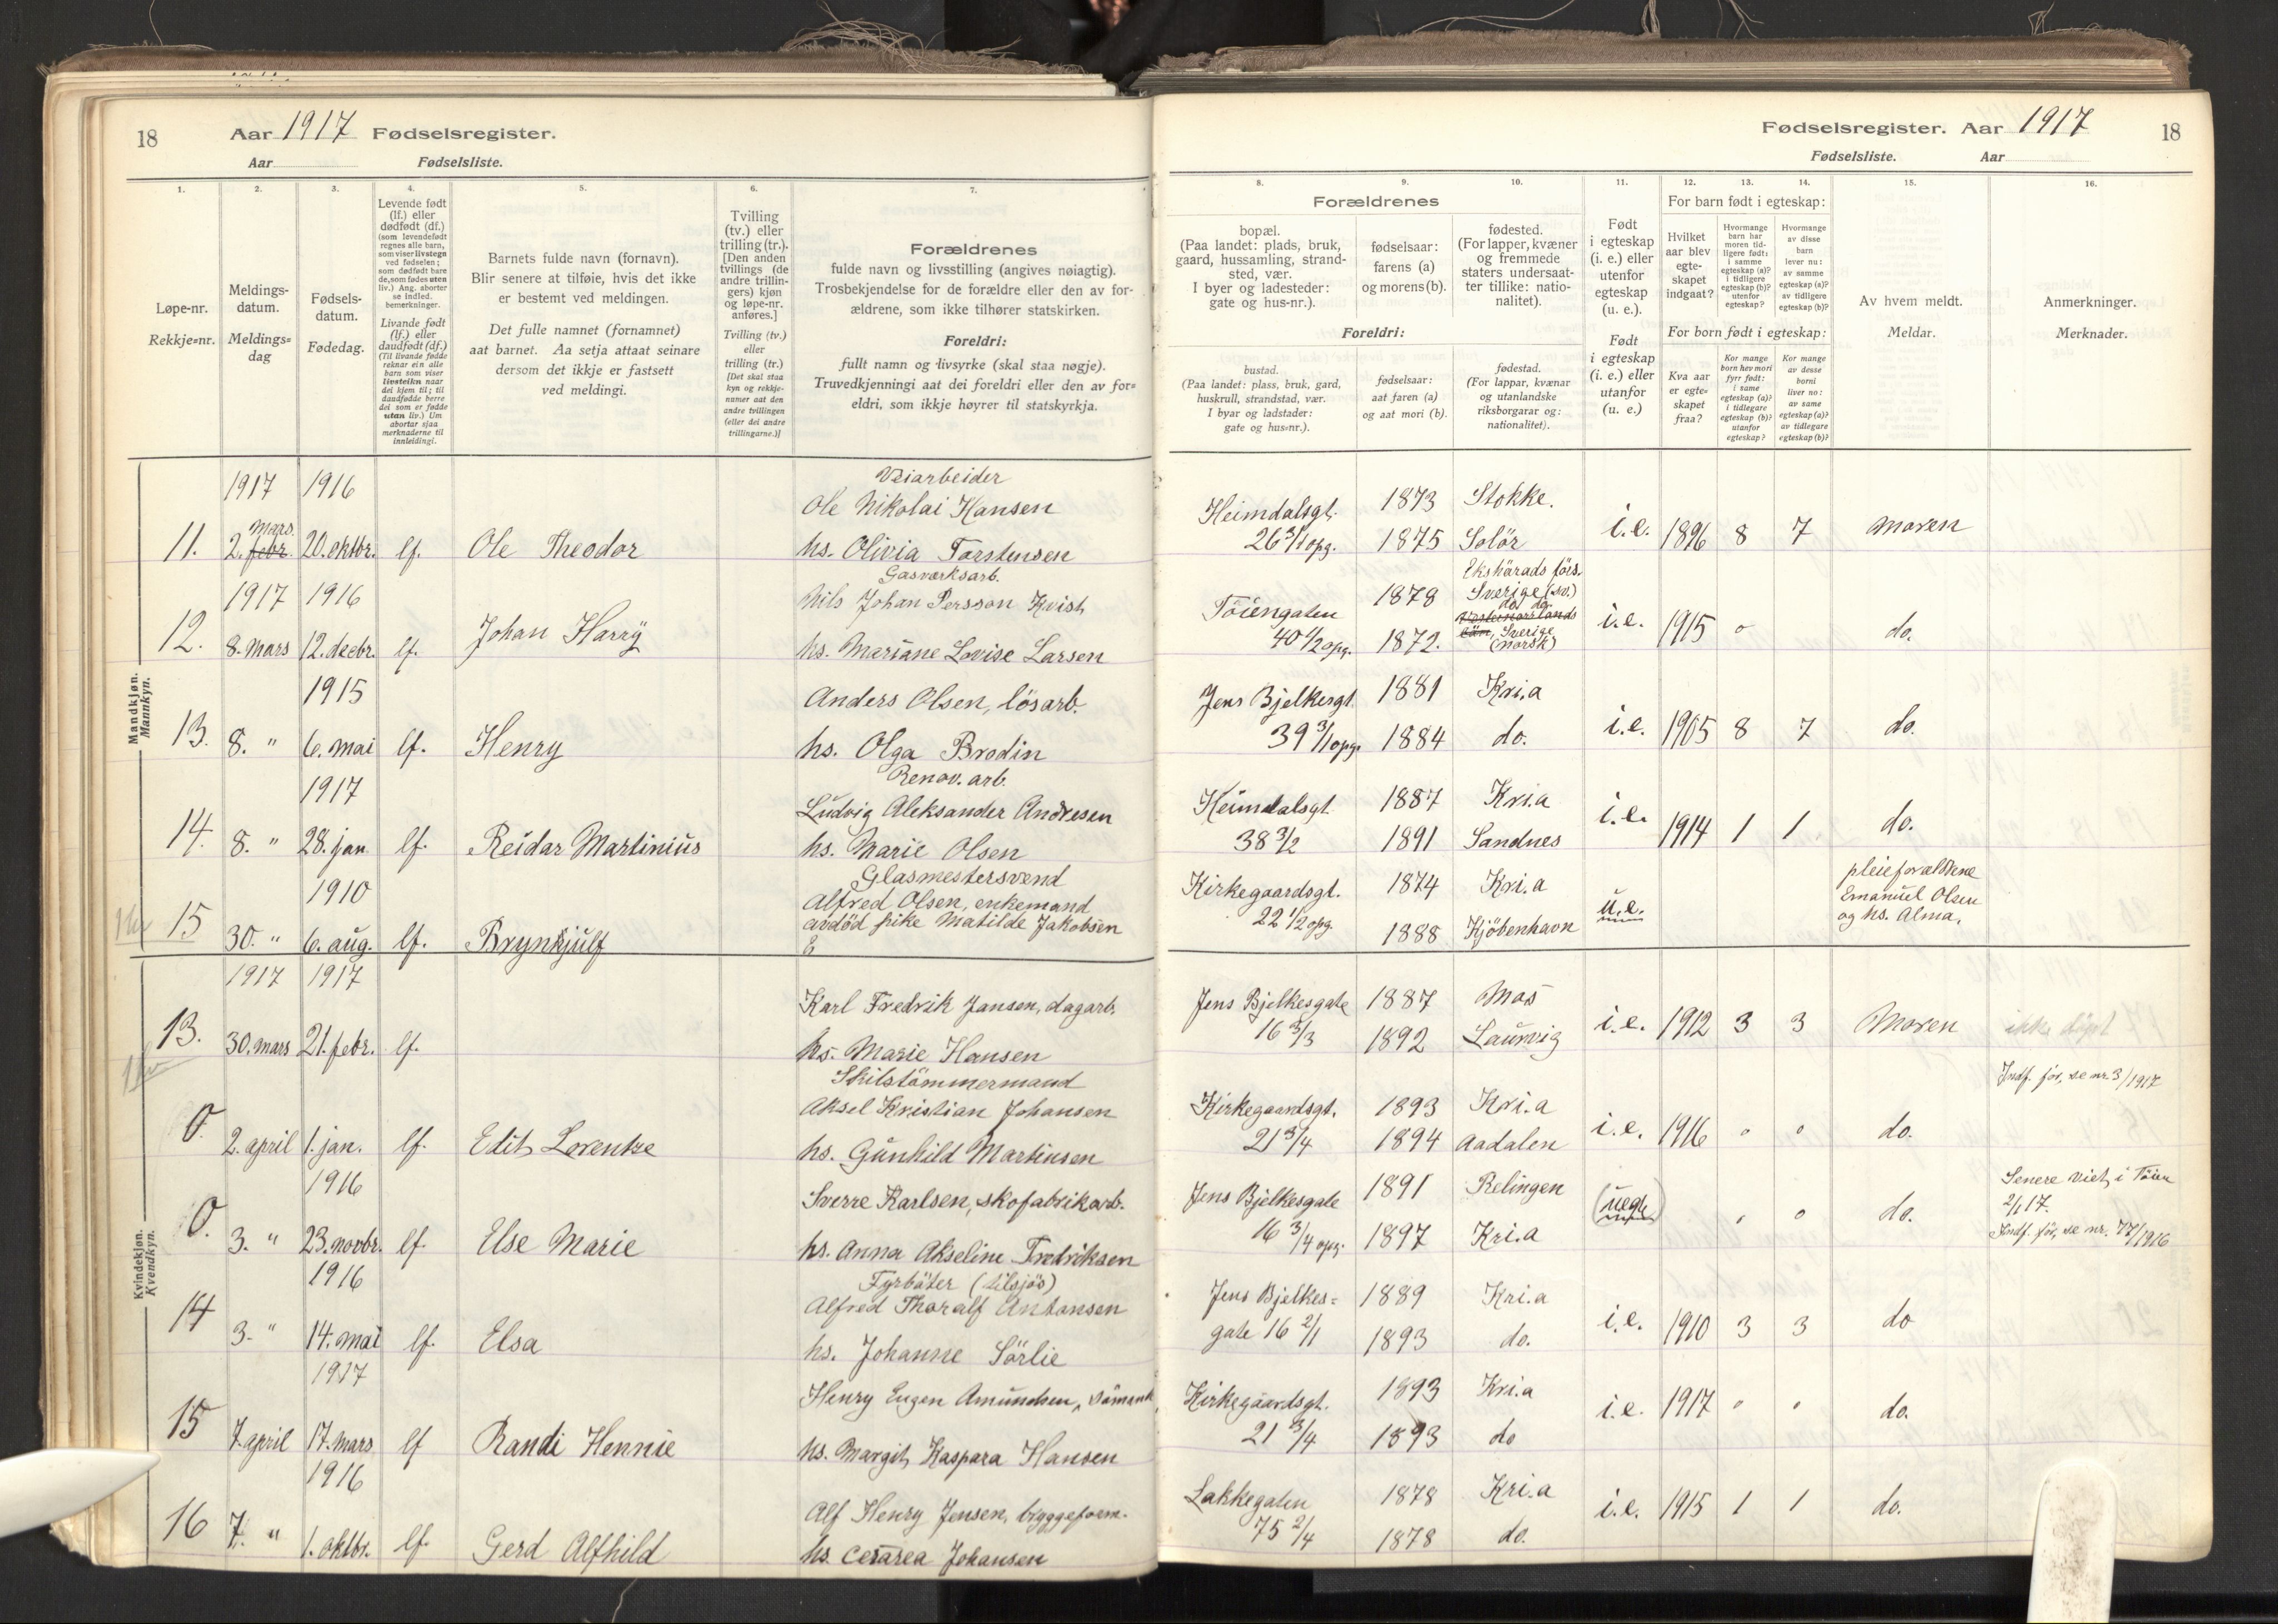 18
Aar 1917 Fødselsregister.
Aar Fødselsliste.
Fødselsregister. Aar 1917
18
Fødselsliste. Aar
1.
Løpe-nr.
Rekkje=nr.
2.
Meldings-
datum.
Meldings=
dag
3.
Fødsels-
datum.
Fødedag.
4.
Levende født
(lf.) eller
dødfødt (df.)
(som levendefødt
regnes alle barn,
som viser livstegn
ved fødselen;
som dødfødt bare
de, som fødes uten
liv.) Ang. aborter
se indled.
bemerkninger.
Livande født
(lf.) eller
daudfødt (df.)
(Til livande fødde
reknar ein alle
barn som viser
livsteikn naar
dei kjem til; til
daudfødde berre
dei som er fødde
utan liv.) Um
abortar sjaa
merknaderne til
innleidingi.
5.
Barnets fulde navn (fornavn).
Blir senere at tilføie, hvis det ikke
er bestemt ved meldingen.
Det fulle namnet (fornamnet)
aat barnet. Aa setja attaat seinare
dersom det ikkje er fastsett
ved meldingi.
6.
Tvilling
(tv.) eller
trilling (tr.).
[Den anden
tvillings (de
andre trillin-
gers) kjøn
og løpe-nr.
anføres.]
Tvilling (tv.)
eller
trilling (tr.)
[Det skal staa
kyn og rekkje-
numer aat den
andre tvillingen
(eller dei andre
trillingarne.)]
7.
Forældrenes
fulde navn og livsstilling (angives nøiagtig).
Trosbekjendelse for de forældre eller den av for-
ældrene, som ikke tilhører statskirken.
Foreldri:
fullt namn og livsyrke (skal staa nøgje).
Truvedkjenningi aat dei foreldri eller den av for=
eldri, som ikkje høyrer til statskyrkja.
Forældrenes
8.
bopæl.
(Paa landet: plads, bruk,
gaard, hussamling, strand-
sted, vær.
I byer og ladesteder:
gate og hus-nr.).
9.
fødselsaar:
farens (a)
og morens (b).
10.
fødested.
(For lapper, kvæner
og fremmede
staters undersaat-
ter tillike: natio-
nalitet).
Foreldri:
bustad.
(Paa landet: plass, bruk, gard,
huskrull, strandstad, vær.
I byar og ladstader:
gate og hus=nr.).
fødselsaar:
aat faren (a)
og aat mori (b).
fødestad.
(For lappar, kvænar
og utanlandske
riksborgarar og:
nationalitet).
11.
Født
i egteskap
(i. e.) eller
utenfor
egteskap
(u. e.).
Født
i egteskap
(i. e.) eller
utanfor
(u. e.)
For barn født i egteskap:
12.
Hvilket
aar blev
egte-
skapet
indgaat?
13.
Hvormange
barn har
moren tid-
ligere født:
i samme
egteskap (a)?
i tidligere
egteskap (b)?
utenfor
egteskap?
14.
Hvormange
av disse
barn
lever nu:
av samme
egteskap (a)?
av tidligere
egteskap (b)?
For born født i egteskap:
Kva aar
er egte-
skapet
fraa?
Kor mange
born hev mori
fyrr født:
i same
egteskap (a)?
i tidlegare
egteskap (b)?
utanfor
egteskap?
Kor mange
av desse
borni
liver no:
av same
egteskap (a)?
av tidlegare
egteskap (b)?
15.
Av hvem meldt.
Meldar.
16.
Anmerkninger.
Merknader.
Mandkjøn.
Mannkyn.
1917 1916 Veiarbeider
Ole Nikolai Hansen Heimdalsgt. 1873 Stokke.
11. 2. febr. mars. 20. oktbr. lf. Ole Theodor hs. Olivia Torstensen 26 3/1 opg. 1875 Solör i.e. 1896 8 7 moren
1917 1916 Gasværksarb.
Nils Johan Persson Kvist Töiengaten 1878 Ekshärads förs. Sverige (sv.)
12. 8. mars 12. decbr. lf. Johan Harry hs. Mariane Lovise Larsen 40 1/2 opg. 1872. do do Vesternorrlands län, Sverige (norsk) i.e. 1915 o do.
1915 Anders Olsen, lösarb. Jens Bjelkesgt. 1881 Kri.a
13. 8. " 6. mai lf. Henry hs. Olga Brodin 39 3/1 opg. 1884 do. i.e. 1905 8 7 do.
1917 Renov. arb.
Ludvig Aleksander Andresen Heimdalsgt. 1887 Kri.a
14. 8. " 28. jan. lf. Reidar Martinius hs. Marie Olsen 38 3/2 1891 Sandnes i.e. 1914 1 1 do.
1910 Glasmestersvend
Alfred Olsen, enkemand Kirkegaardsgt. 1874 Kri.a
15 30. " 6. aug. lf. Brynhjulf avdöd pike Matilde Jakobsen 22 1/2 opg. 1888 Kjöbenhavn u.e. pleieforældrene
Emanuel Olsen
og hs. Alma.
Kvindekjøn.
Kvendkyn.
1917 1917 Karl Fredrik Jansen, dagarb. Jens Bjelkesgate 1887 Mos
13. 30. mars 21. febr. lf. hs. Marie Hansen 16 3/3 1892 Laurvig i.e. 1912 3 3 Moren ikke döpt
Skilstömmermand Indf. för, se nr. 3/1917
Aksel Kristian Johansen Kirkegaardsgt. 1893 Kri.a
0. 2. april 1. jan. lf. Edit Lorentze hs. Gunhild Martinsen 21 3/4 1894 Aadalen i.e. 1916 o o do.
1916 Sverre Karlsen, skofabrikarb. Jens Bjelkesgate 1891 Relingen Senere viet i Töien 2/1 17.
0. 3. " 23. novbr. lf. Else Marie hs. Anna Akseline Fredriksen 16 3/4 opg. 1897 Kri.a (uegte) o o do. Indf. för, se nr. 77/1916
1916 Fyrböter (tilsjös)
Alfred Thoralf Antonsen Jens Bjelkes= 1889 Kri.a
14 3. " 14. mai lf. Elsa hs. Johanne Sörlie gate 16 2/1 1893 do. i.e. 1910 3 3 do
1917 Henry Eugen Amundsen, Kirkegaardsgt. 1893 Kri.a
15 7. april 17. mars lf Randi Hennie hs. Margit Kaspara Hansen 21 3/4 1893 do i.e. 1917 o o do.
1916 Alf Henry Jensen, byggeform. Lakkegaten 1878 Kri.a
16 7. " 1. oktbr. lf. Gerd Alfhild hs. Cesarea Johansen 75 2/4 1878 do. i.e. 1915 1 1 do.